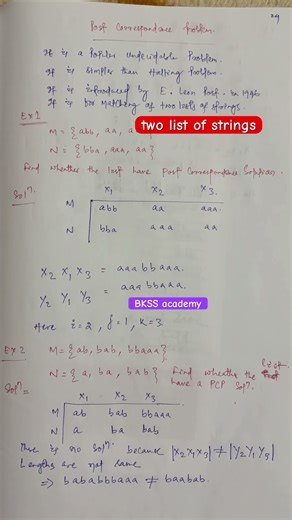 29
Post Correspondence Problem.
It is a Popular Undecidable Problem.
It is simpler than Halting Problem.
It is introduced by E. Leon Post. in 1946
It is for Matching of two lists of strings.
Ex 1
M = {abb, aa, a
two list of strings
N = {bba, aaa, aa}
Find whether the list have Post Correspondence Solution.
Sol^n.
x1 x2 x3.
M abb aa aaa.
N bba aaa aa
X2 X1 X3 = aaabbaaa.
Y2 Y1 Y3 = aaabbaaa.
BKSS academy
Here i=2, j=1, k=3
Ex 2 M = {ab, bab, bbaaa}
N = {a, ba, bab} Find whether the list
have a PCP Sol^n.
Sol^n =
x1 x2 x3
M ab bab bbaaa
N a ba bab
There is no sol^n. because |X2X1X3| ≠ |Y2Y1Y3|
Lengths are not same
⇒ bababbbaaa ≠ baabab.